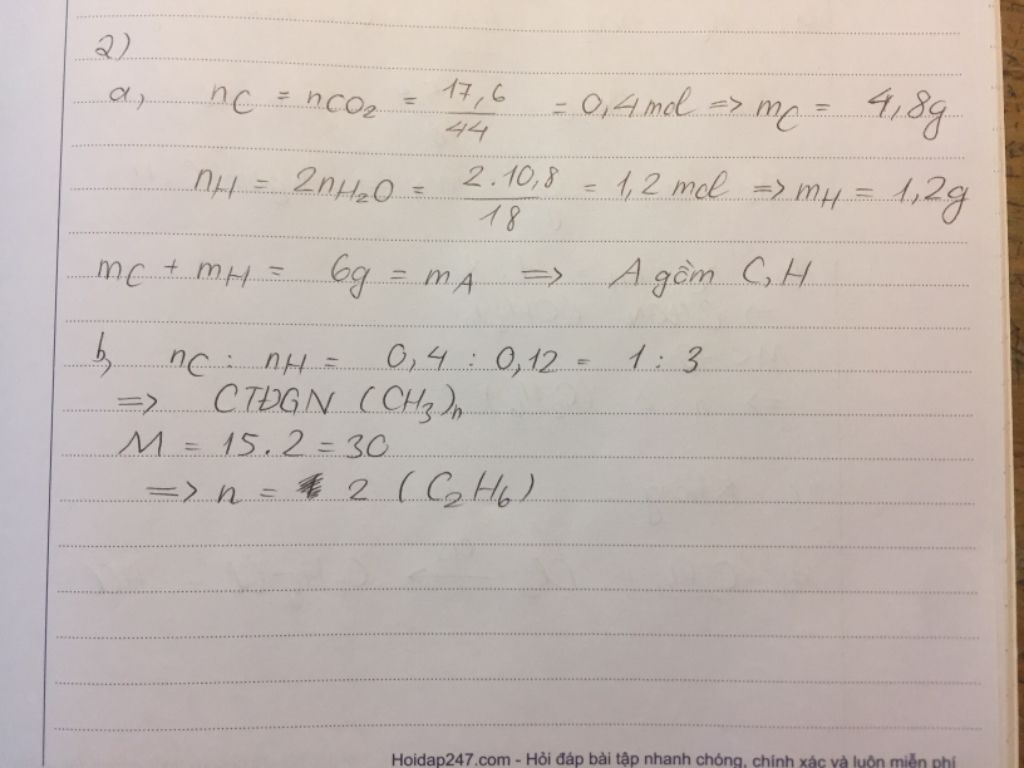 2)
a, nC = nCO2 = 17,6/44 = 0,4 mol => mC = 4,8g
nH = 2nH2O = 2.10,8/18 = 1,2 mol => mH = 1,2g
mC + mH = 6g = mA => A gồm C, H
b, nC : nH = 0,4 : 0,12 = 1 : 3
=> CTĐGN (CH3)n
M = 15.2 = 30
=> n = 2 (C2H6)
Hoidap247.com - Hỏi đáp bài tập nhanh chóng, chính xác và luôn miễn phí